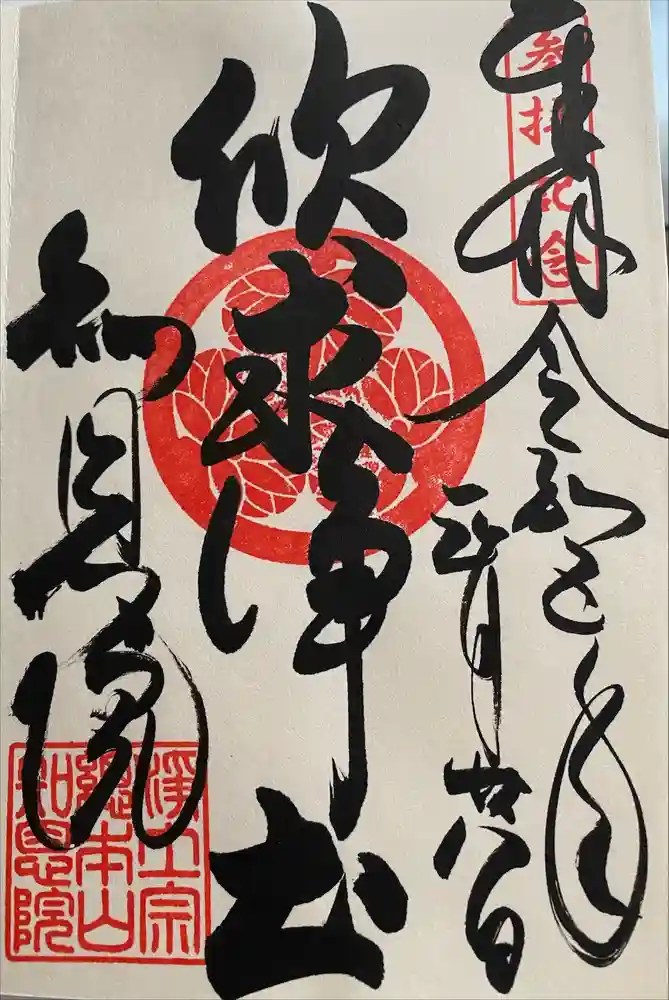 参拝記念
奉拝
令和五年
三月廿八日
欣求浄土
知恩院
浄土宗
總本山
知恩院